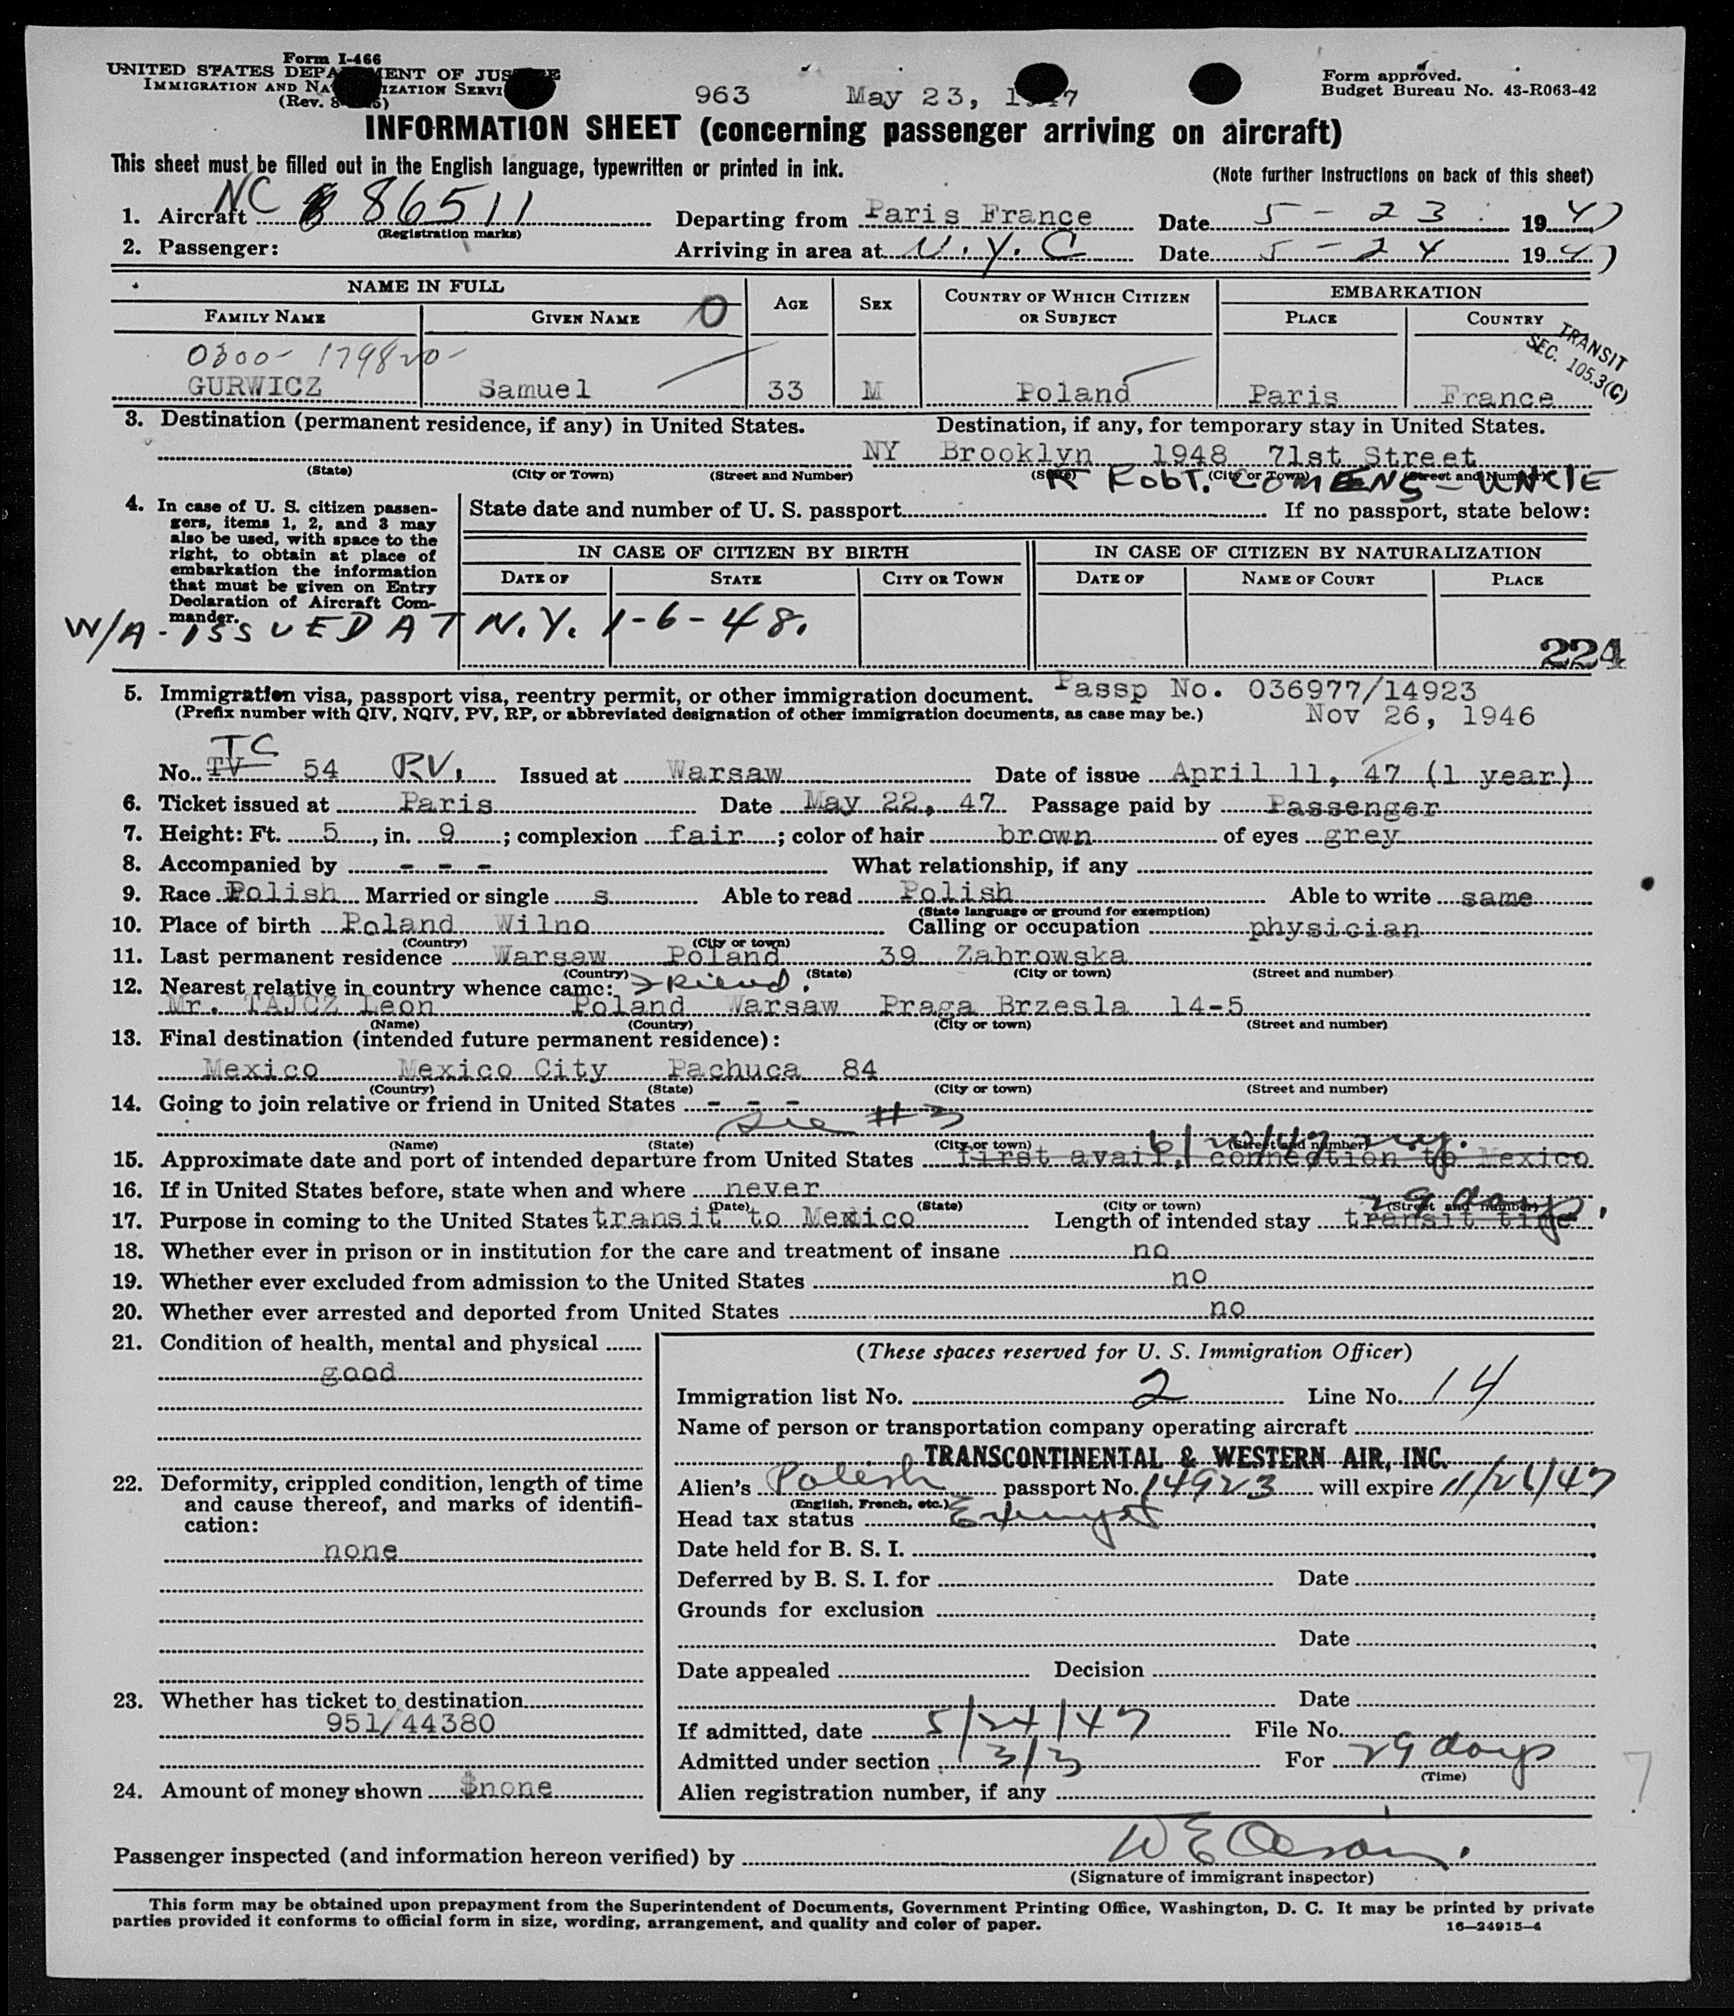 Form I-466
UNITED STATES DEPA MENT OF JUS E
IMMIGRATION AND NA IZATION SERVI
(Rev. 8 )
963 May 23, 1 7
Form approved.
Budget Bureau No. 43-R063-42
INFORMATION SHEET (concerning passenger arriving on aircraft)
This sheet must be filled out in the English language, typewritten or printed in ink.
(Note further instructions on back of this sheet)
1. Aircraft NC 86511 Departing from Paris France Date 5-23 1947
(Registration marks)
2. Passenger: Arriving in area at N.Y.C Date 5-24 1947
NAME IN FULL AGE SEX COUNTRY OF WHICH CITIZEN OR SUBJECT EMBARKATION
FAMILY NAME GIVEN NAME O PLACE COUNTRY
TRANSIT
SEC. 105.3(C)
0300-179820-
GURWICZ Samuel 33 M Poland Paris France
3. Destination (permanent residence, if any) in United States. Destination, if any, for temporary stay in United States.
NY Brooklyn 1948 71st Street
(State) (City or Town) (Street and Number) (State) (City or Town) (Street and Number)
Robt. UNKLE
4. In case of U. S. citizen passengers, items 1, 2, and 3 may also be used, with space to the right, to obtain at place of embarkation the information that must be given on Entry Declaration of Aircraft Commander.
State date and number of U. S. passport If no passport, state below:
IN CASE OF CITIZEN BY BIRTH IN CASE OF CITIZEN BY NATURALIZATION
DATE OF STATE CITY OR TOWN DATE OF NAME OF COURT PLACE
W/A - ISSUED AT N.Y. 1-6-48.
224
5. Immigration visa, passport visa, reentry permit, or other immigration document. Passp No. 036977/14923
(Prefix number with QIV, NQIV, PV, RP, or abbreviated designation of other immigration documents, as case may be.) Nov 26, 1946
TC
No. TV 54 RV. Issued at Warsaw Date of issue April 11, 47 (1 year)
6. Ticket issued at Paris Date May 22, 47 Passage paid by Passenger
7. Height: Ft. 5, in. 9; complexion fair; color of hair brown of eyes grey
8. Accompanied by - - - What relationship, if any
9. Race Polish Married or single s Able to read Polish Able to write same
(State language or ground for exemption)
10. Place of birth Poland Wilno Calling or occupation physician
(Country) (City or town)
11. Last permanent residence Warsaw Poland 39 Zabrowska
(Country) (State) (City or town) (Street and number)
12. Nearest relative in country whence came: Friend.
Mr. TAJCZ Leon Poland Warsaw Praga Brzesla 14-5
(Name) (Country) (City or town) (Street and number)
13. Final destination (intended future permanent residence):
Mexico Mexico City Pachuca 84
(Country) (State) (City or town) (Street and number)
14. Going to join relative or friend in United States - - -
See #3
(Name) (State) (City or town) (Street and number)
15. Approximate date and port of intended departure from United States first avail. connection to Mexico
16. If in United States before, state when and where never
(Date) (State) (City or town) (Street and number)
29 days.
17. Purpose in coming to the United States transit to Mexico Length of intended stay transit time
18. Whether ever in prison or in institution for the care and treatment of insane no
19. Whether ever excluded from admission to the United States no
20. Whether ever arrested and deported from United States no
21. Condition of health, mental and physical
good
22. Deformity, crippled condition, length of time and cause thereof, and marks of identification:
none
23. Whether has ticket to destination
951/44380
24. Amount of money shown $none
(These spaces reserved for U. S. Immigration Officer)
Immigration list No. 2 Line No. 14
Name of person or transportation company operating aircraft
TRANSCONTINENTAL & WESTERN AIR, INC.
Alien's Polish passport No. 14923 will expire 11/26/47
(English, French, etc.)
Head tax status Exempt
Date held for B. S. I.
Deferred by B. S. I. for Date
Grounds for exclusion
Date
Date appealed Decision
Date
If admitted, date 5/24/47 File No.
Admitted under section 3/3 For 29 days
(Time)
Alien registration number, if any
7
Passenger inspected (and information hereon verified) by
(Signature of immigrant inspector)
This form may be obtained upon prepayment from the Superintendent of Documents, Government Printing Office, Washington, D. C. It may be printed by private
parties provided it conforms to official form in size, wording, arrangement, and quality and color of paper. 16—24915-4